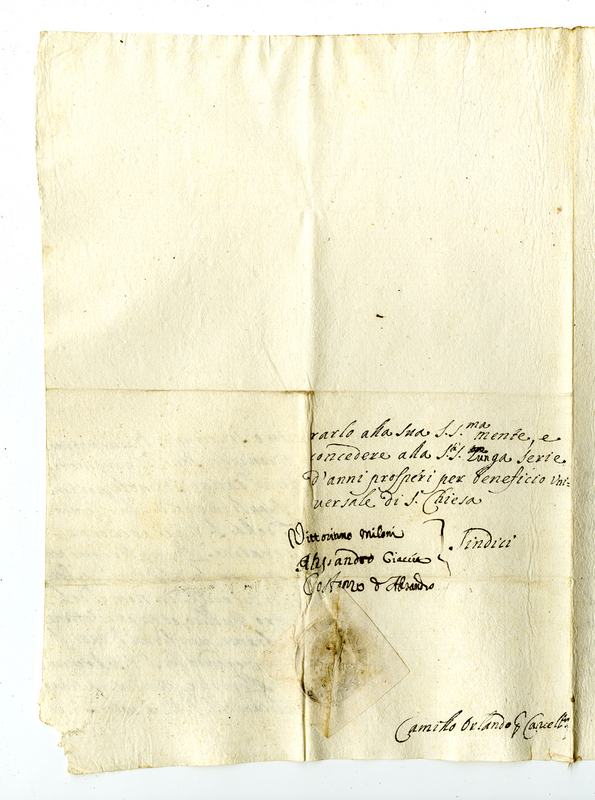 rarlo alla sua S.S.ma mente, e
concedere alla S.S. lunga serie
d'anni prosperi per beneficio Uni=
versale di S. Chiesa
Vittoriano Miloni
Alessandro Ciaccia
Sindici
Costanzo d'Alesandro
Camillo Orlando Cancell.re